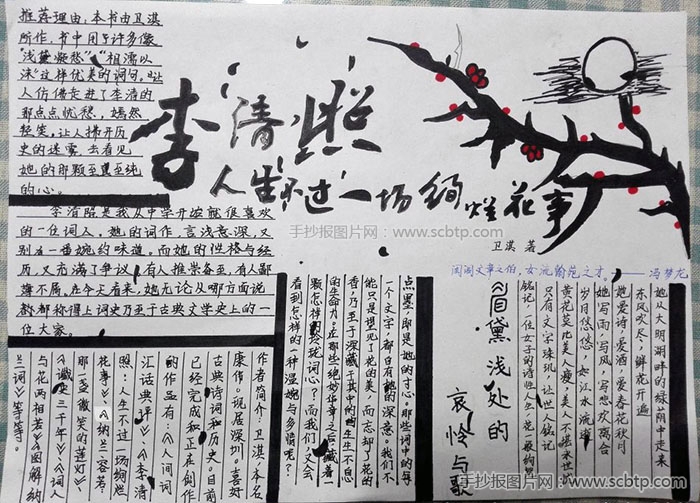 推荐理由:本书由卫淇
所作,书中用了许多像
"浅黛凝愁""相濡以
沫"这样优美的词句。让
人仿佛走进了李清的
那点点忧愁,嫣然
轻笑,让人拂开历
史的迷雾,去看见
她的那颗至真至纯
的心。
李清照是我从中学开始就很喜欢
的一位词人。她的词作,言浅意深,又
别有一番婉约味道。而她的性格与经
历,又充满了争议,有人推崇备至,有人鄙
薄不屑。在今天看来,她无论从哪方面说
都称得上词史乃至于古典文学史上的一
位大家。
李清照
人生不过一场绚烂花事
卫淇 著
手抄报图片网:www.scbtp.com
闺阁文章之伯,女流翰苑之才。——冯梦龙
她从大明湖畔的绿荫中走来
东风吹尽,鲜花开遍
她爱诗,爱酒,爱春花秋月
她写雨,写风,写悲欢离合
岁月悠悠,如江水流逝
黄花莫比美人瘦,美人不堪永世
只有文字珠玑,让世人铭记
铭记,一位女子的诗性人生
《眉黛浅处的
哀怜与歌
点墨,即是她的寸心。那些词中的每
一个文字,都自有她的深意。我们不
能只是望见了花的美,而忘却了花的
香,乃至于深藏于其中的生生不息
的生命力。在那些绝妙华章之后,藏着一
颗怎样的玲珑词心?而我们,又会
看到怎样的一种温婉与多情呢?
作者简介:卫淇,本名
康作,现居深圳,喜好
古典诗词和历史。目前
已经完成和正在创作
的作品有《人间词
汇话典评》《李清
照:人生不过一场绚烂
花事》《纳兰容若
那一盏微笑的莲灯》
《谶史三千年》《人
与花两相若》《图解纳
兰词》等等。
手抄报图片网:www.scbtp.com